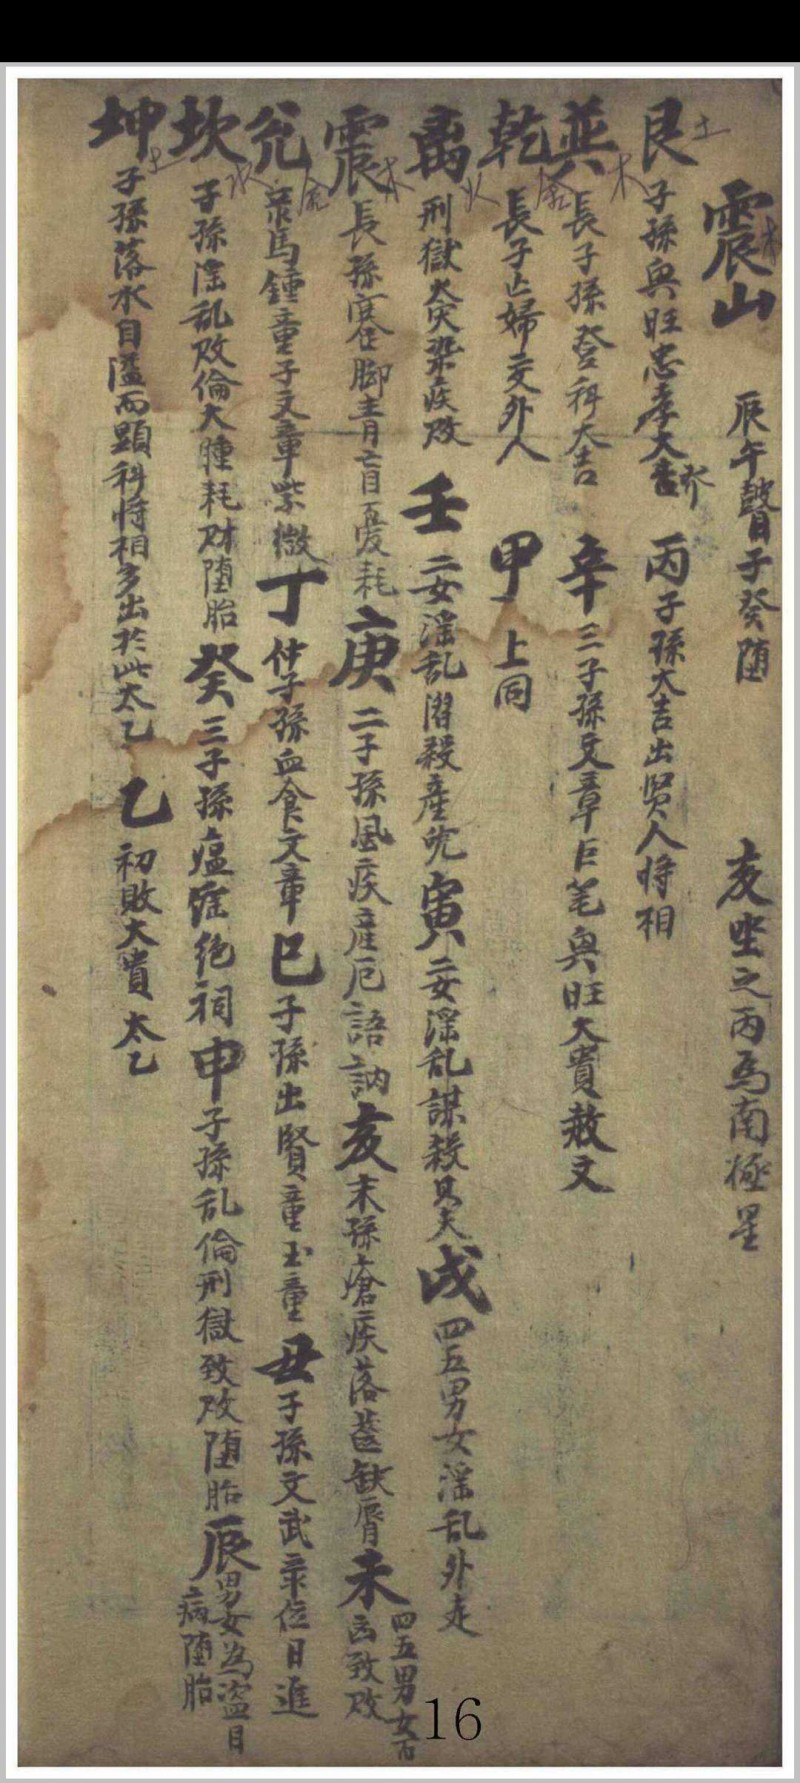 震山 木 辰午瞽目子癸堕 亥坐之丙為南極星
艮 土 子孫興旺忠孝大吉 丙子孫大吉出贤人将相
巽 木 長子孫登科大吉 辛三子孫文章巨笔興旺大貴赦文
乾 金 長子亡婦交外人 甲上同
离 火 刑獄火灾染疾败 壬二女淫乱潛殺産 寅二女淫乱謀殺其夫 戌四五男女淫乱外走
震 木 長孫蹇脚青盲憂耗 庚二子孫風疾産厄語訥 亥末孫瘡疾落 缺唇 未四五男女 凶致败
兊 金 馬鍾童子文章紫微 丁仲子孫血食文章 巳子孫出賢童玉童 丑子孫文武 位日進
坎 水 子孫淫乱败倫大腫耗财堕胎 癸三子孫瘟 绝祠 申子孫乱倫刑獄致败堕胎 辰男女為盗目病堕胎
坤 土 子孫落水自溢而顕科将相多出於此太乙 乙初敗大貴太乙
16